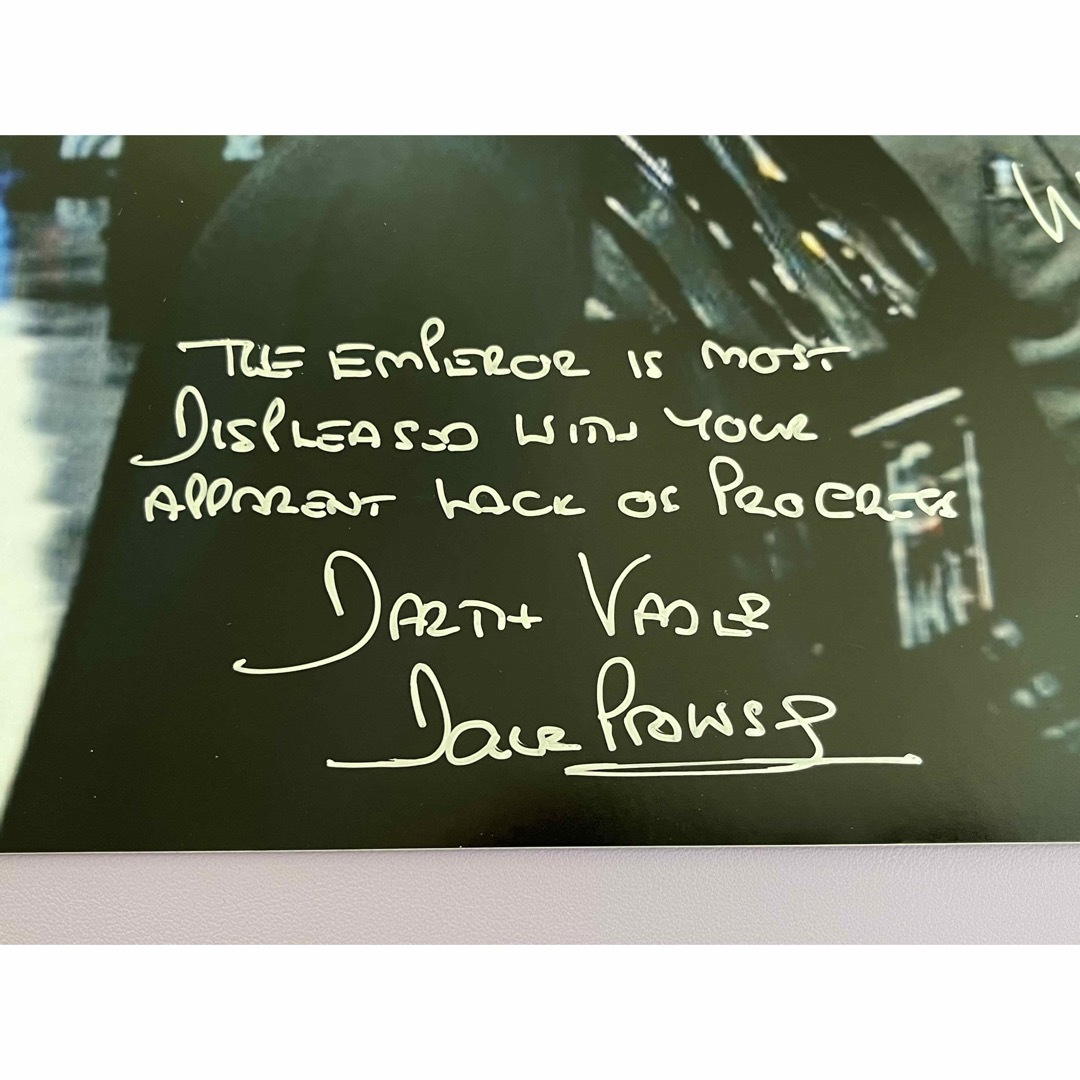 THE EMPEROR IS MOST
DISPLEASED WITH YOUR
APPARENT LACK OF PROGRESS
DARTH VADER
Dave Prowse